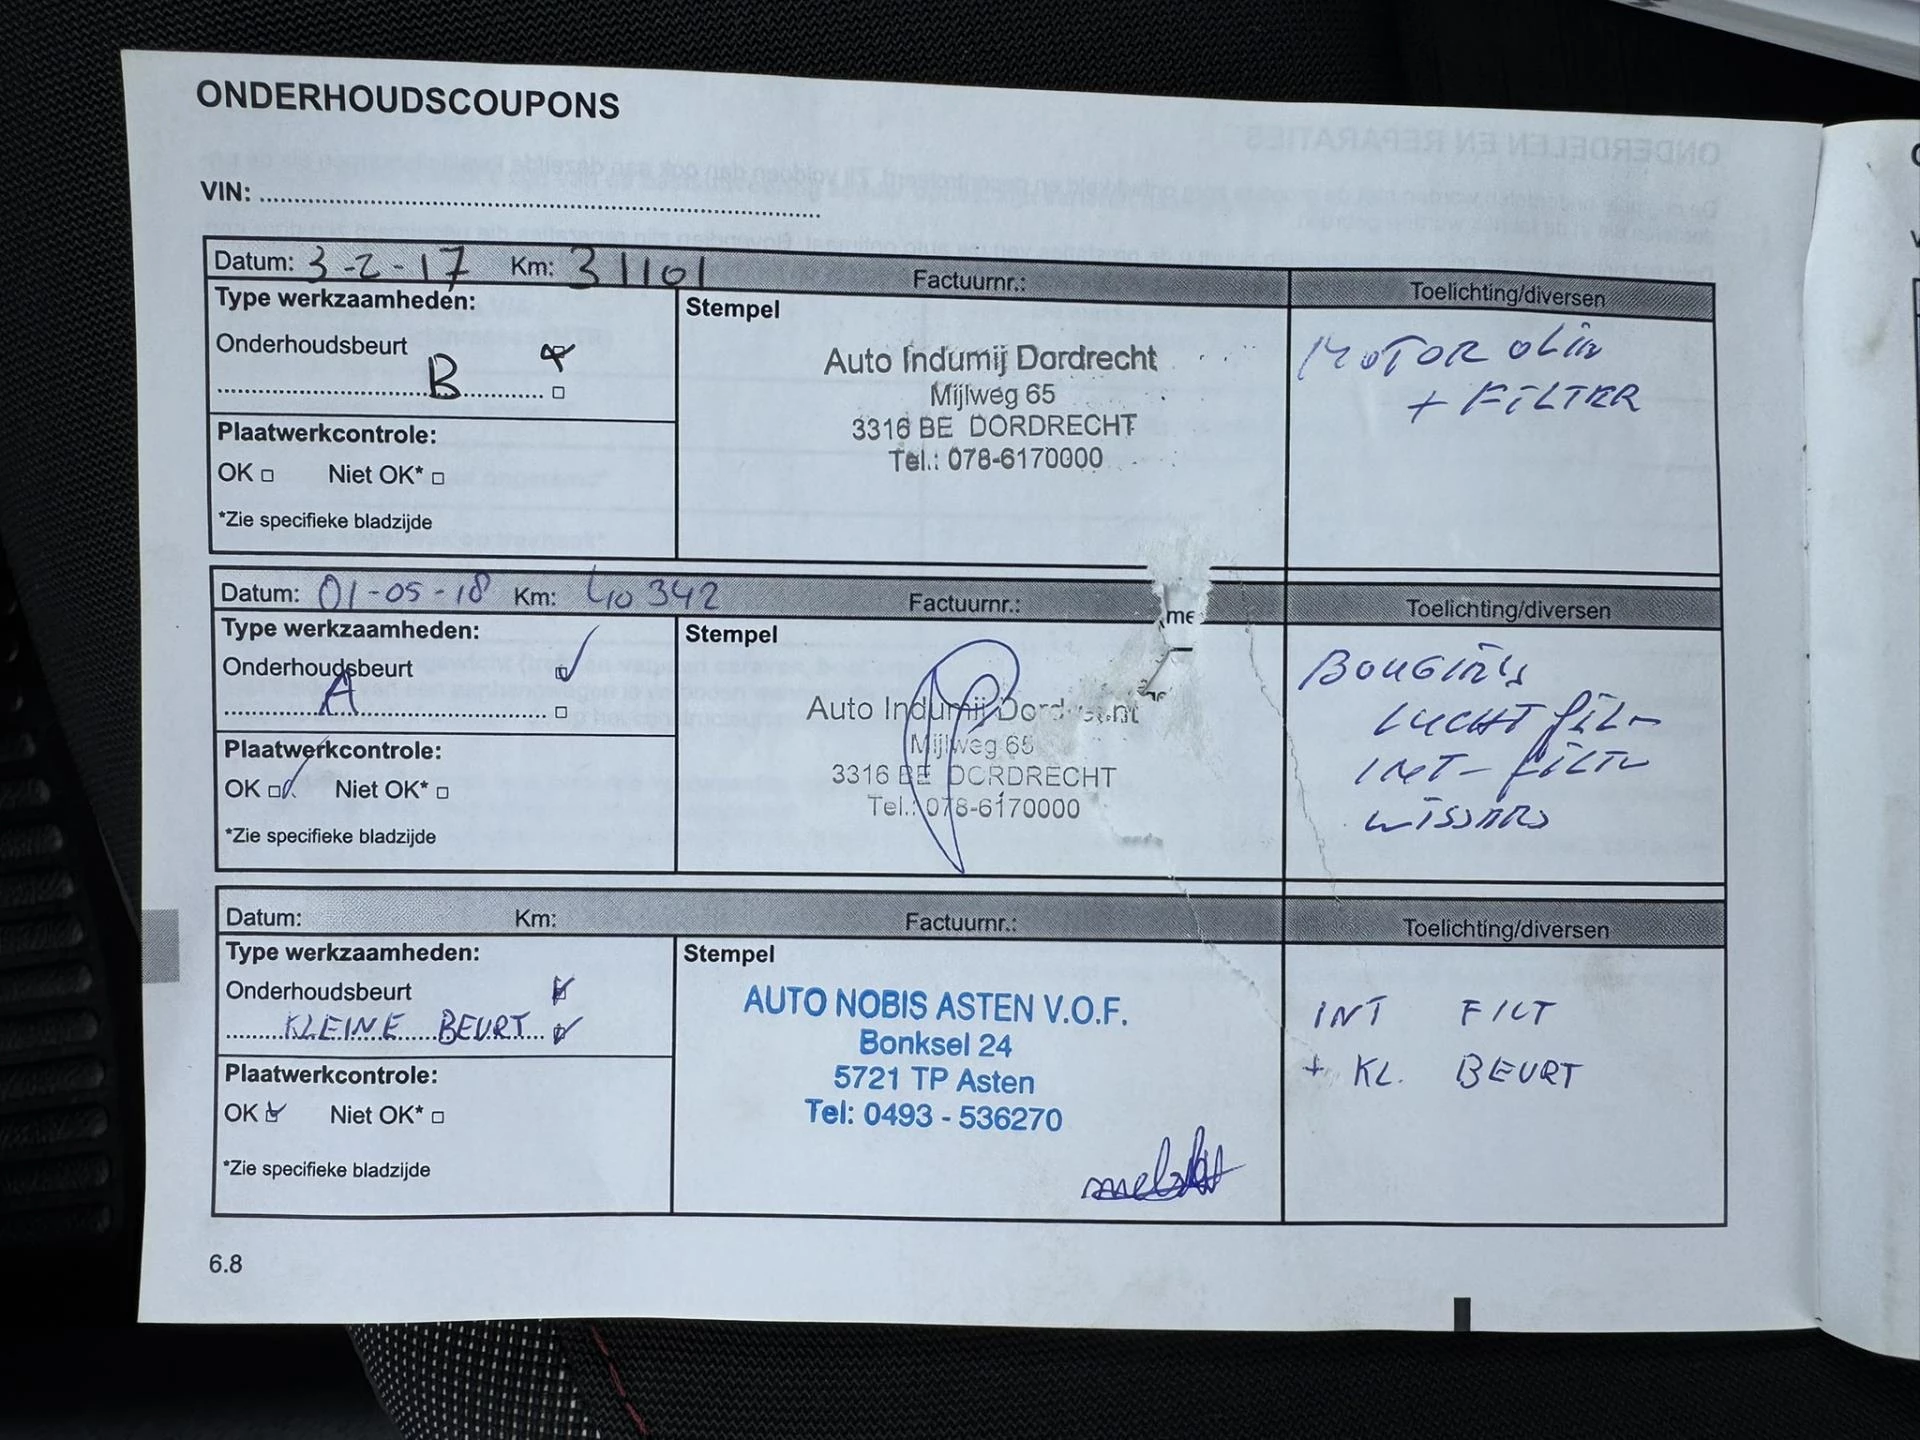 ONDERHOUDSCOUPONS
ONDERDELEN EN REPARATIES
VIN:
Datum: 3-2-17 Km: 31101 Factuurnr.: Toelichting/diversen
Type werkzaamheden:
Stempel
Onderhoudsbeurt
B
Plaatwerkcontrole:
OK Niet OK*
*Zie specifieke bladzijde
Auto Indumij Dordrecht
Mijlweg 65
3316 BE DORDRECHT
Tel.: 078-6170000
MOTOR OLIE
+ FILTER
Datum: 01-05-18 Km: 40342 Factuurnr.: Toelichting/diversen
me
Type werkzaamheden:
Stempel
Onderhoudsbeurt
A
Plaatwerkcontrole:
OK Niet OK*
*Zie specifieke bladzijde
Auto Indumij Dordrecht
Mijlweg 65
3316 BE DORDRECHT
Tel.: 078-6170000
BOUGIE'S
LUCHT FIL-
INT-FILTER
WISSERS
Datum: Km: Factuurnr.: Toelichting/diversen
Type werkzaamheden:
Stempel
Onderhoudsbeurt
KLEINE BEURT
Plaatwerkcontrole:
OK Niet OK*
*Zie specifieke bladzijde
AUTO NOBIS ASTEN V.O.F.
Bonksel 24
5721 TP Asten
Tel: 0493 - 536270
INT FILT
+ KL. BEURT
6.8